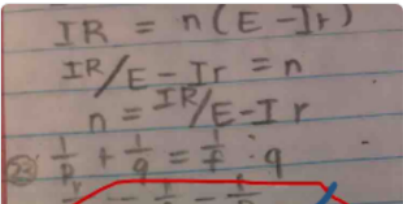 IR = n(E-Ir)
IR/E-Ir = n
n = IR/E-Ir
23 1/p + 1/q = 1/f : q